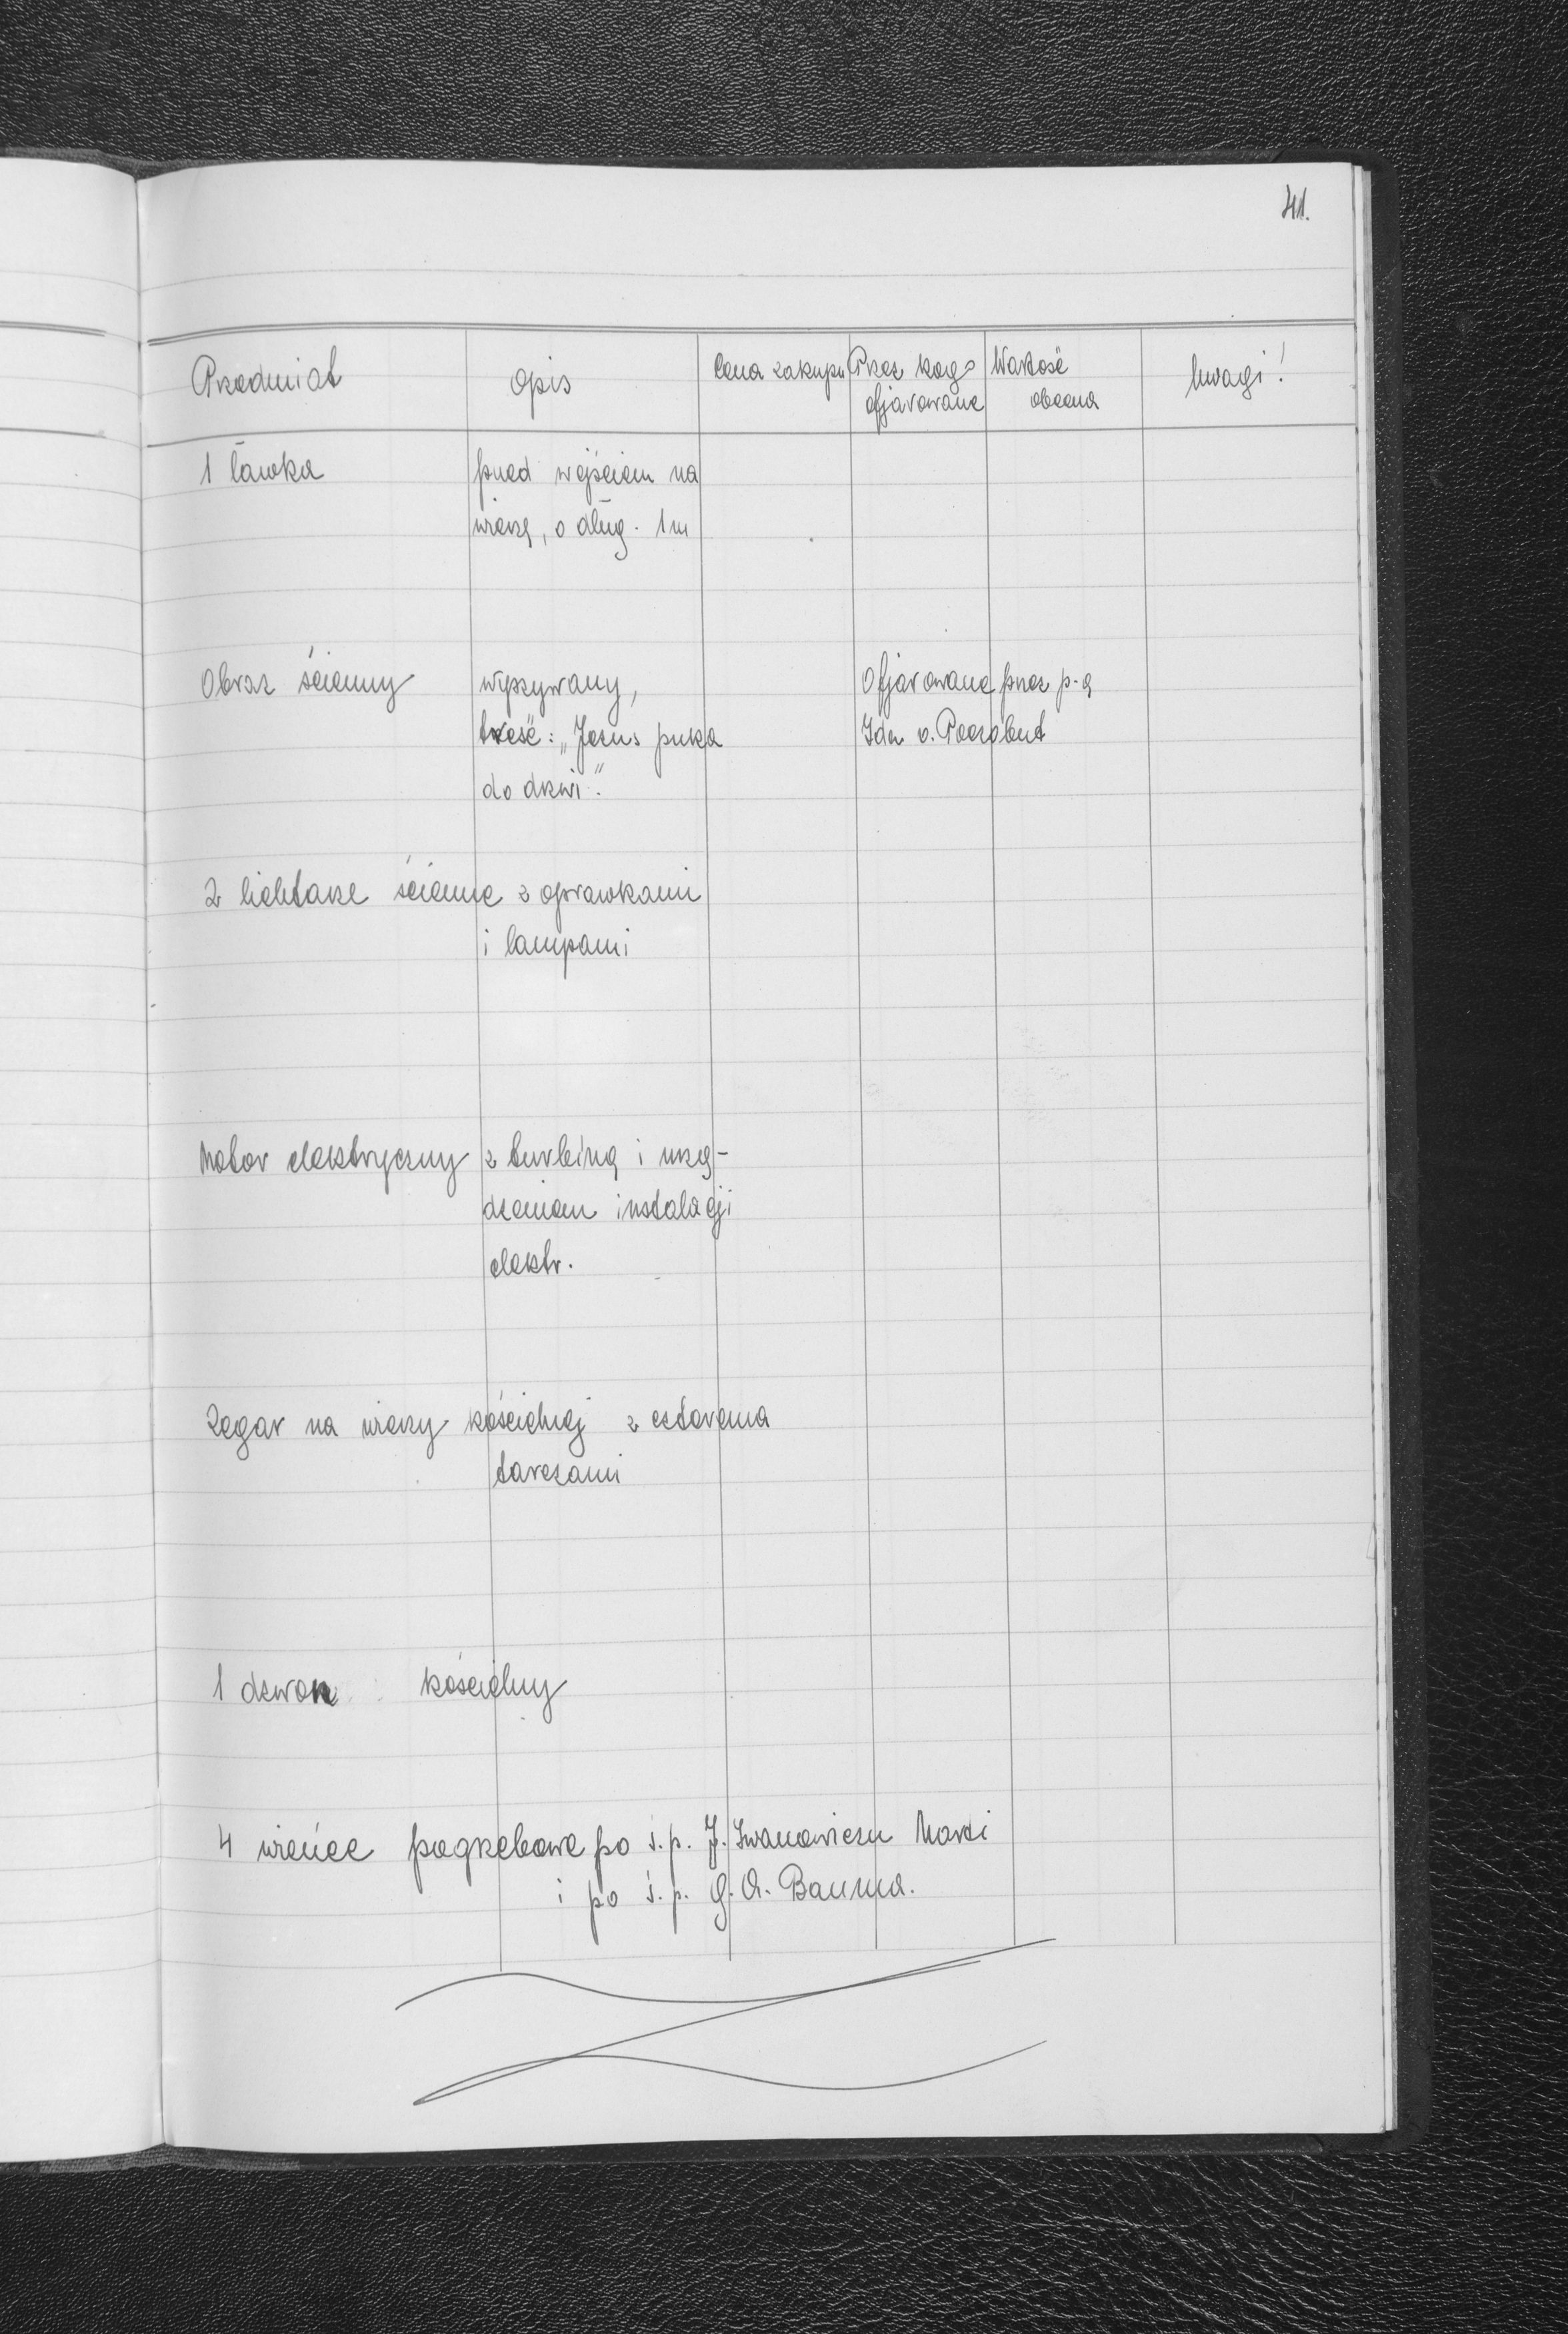 41.
Przedmiot opis Cena zakupu Przez kogo Wartość Uwagi!
ofjarowane obecna
1 ławka przed wejściem na
wieżę, o dług. 1 m
Obraz ścienny wyszywany, Ofjarowane przez p-ą
treść: „Jezus puka Idę v.
do drzwi".
2 lichtarze ścienne z oprawkami
i lampami
Motor elektryczny z turbiną i urzą-
dzeniem instalacji
elektr.
Zegar na wieży kościelnej z czterema
tarczami
1 dzwon kościelny
4 wieńce pogrzebowe po ś.p. J. Iwanowiczu
i po ś.p. G. A. Bauma.